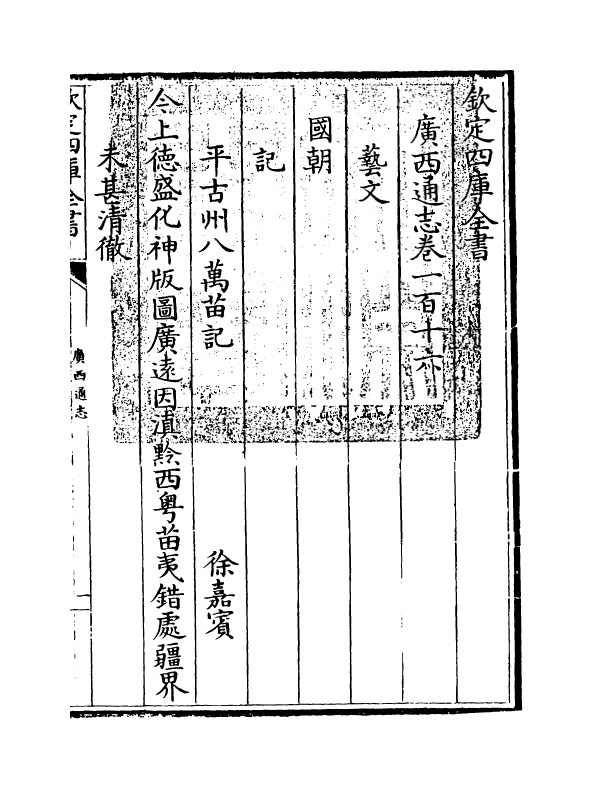 欽定四庫全書
廣西通志卷一百十六
藝文
國朝
記
平古州八萬苗記 徐嘉賓
今上徳盛化神版圖廣遠因滇黔西粵苗夷錯處疆界
未甚清徹
欽定四庫全書
廣西通志
一